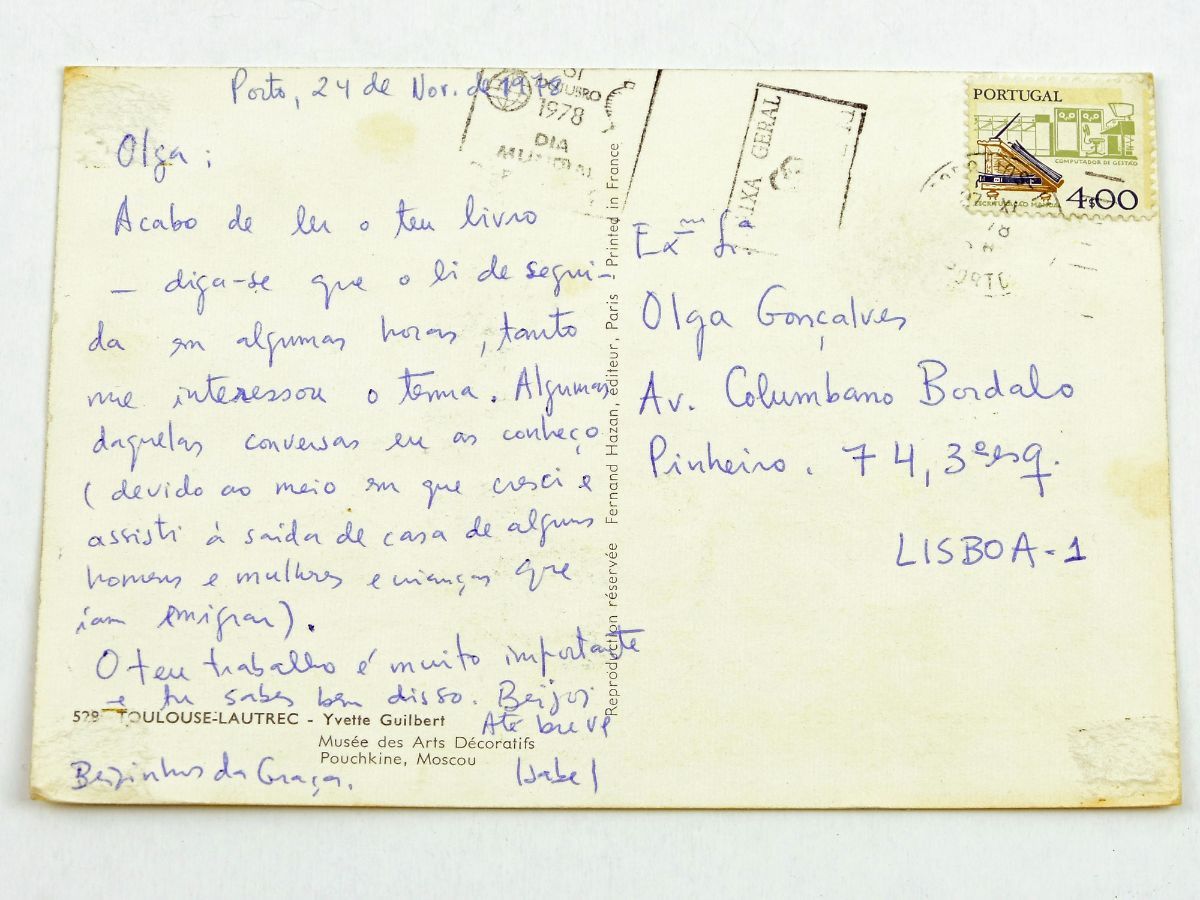 Porto, 24 de Nov. de 1978
Olga:
Acabo de ler o teu livro
– diga-se que o li de segui-
da em algumas horas, tanto
me interessou o tema. Algumas
daquelas conversas eu as conheço
(devido ao meio em que cresci e
assisti à saída de casa de alguns
homens e mulheres e crianças que
iam emigrar).
O teu trabalho é muito importante
e tu sabes bem disso. Beijos
Até breve
Isabel
Beijinhos da Graça.
529 TOULOUSE-LAUTREC - Yvette Guilbert
Musée des Arts Décoratifs
Pouchkine, Moscou
Reproduction réservée Fernand Hazan, éditeur, Paris Printed in France
OUTUBRO
1978
DIA
MUNDIAL
CAIXA GERAL
PORTUGAL
COMPUTADOR DE GESTÃO
ESCRITURAÇÃO MANUAL
4$00
78
Exma Sra
Olga Gonçalves
Av. Columbano Bordalo
Pinheiro. 74, 3º esq.
LISBOA-1